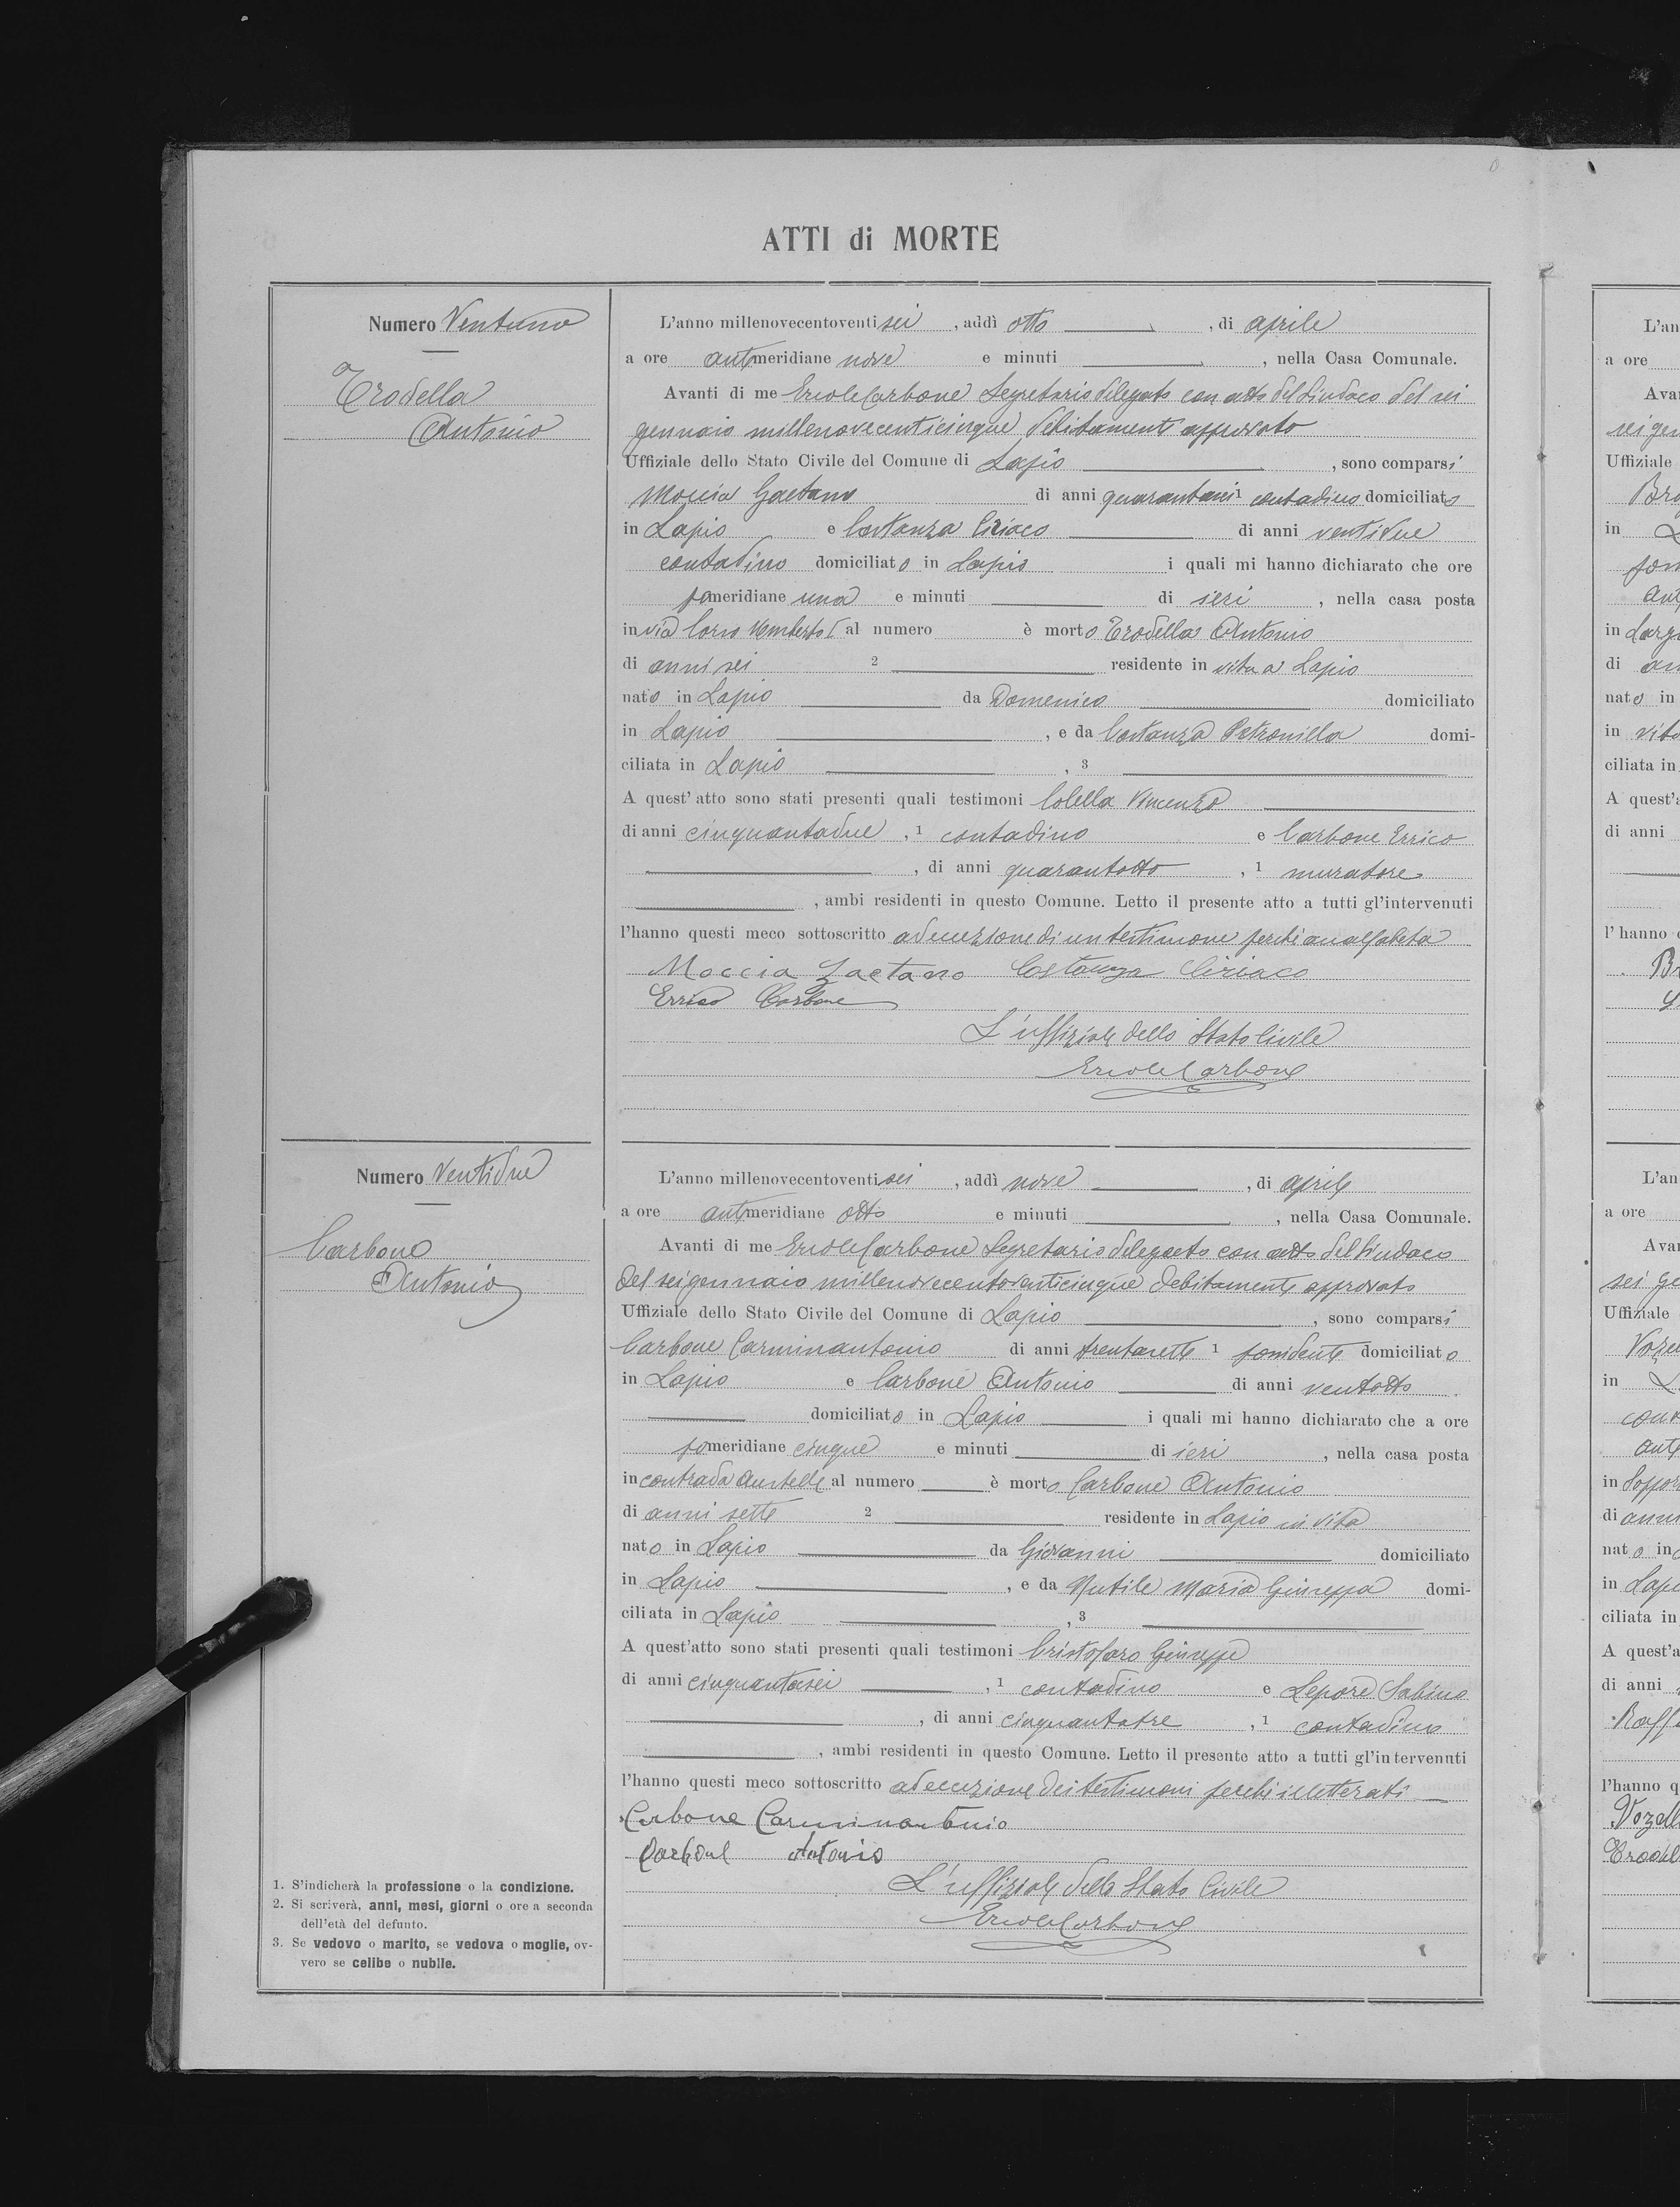 ATTI di MORTE
Numero Ventuno
Trodella
Antonio
L'anno millenovecentoventi sei , addì otto , di aprile
a ore antmeridiane nove e minuti , nella Casa Comunale.
Avanti di me Ercole Carbone Segretario delegato con atto del Sindaco del sei
gennaio millenovecenticinque debitamente approvato
Uffiziale dello Stato Civile del Comune di Lapio , sono comparsi
Moccia Gaetano di anni 1 contadino domiciliato
in Lapio e Costanza Ciriaco di anni ventidue
contadino domiciliato in Lapio i quali mi hanno dichiarato che ore
pomeridiane una e minuti di ieri , nella casa posta
in via Corso Umberto I al numero è morto Trodella Antonio
di anni sei 2 residente in vita a Lapio
nato in Lapio da Domenico domiciliato
in Lapio , e da Costanza Petronilla domi-
ciliata in Lapio , 3
A quest'atto sono stati presenti quali testimoni Colella Vincenzo
di anni cinquantadue , 1 contadino e Carbone Errico
, di anni quarantotto , 1 muratore
, ambi residenti in questo Comune. Letto il presente atto a tutti gl'intervenuti
l'hanno questi meco sottoscritto ad eccezione di un testimone perchè analfabeta
Moccia Gaetano Costanza Ciriaco
Errico Carbone
L'uffiziale dello Stato Civile
Ercole Carbone
Numero Ventidue
Carbone
Antonio
L'anno millenovecentoventi sei , addì nove , di aprile
a ore antmeridiane otto e minuti , nella Casa Comunale.
Avanti di me Ercole Carbone Segretario delegato con atto del Sindaco
del sei gennaio millenovecentoventicinque debitamente approvato
Uffiziale dello Stato Civile del Comune di Lapio , sono comparsi
Carbone Carminantonio di anni trentasette 1 possidente domiciliato
in Lapio e Carbone Antonio di anni ventotto
domiciliato in Lapio i quali mi hanno dichiarato che a ore
pomeridiane cinque e minuti di ieri , nella casa posta
in contrada al numero è morto Carbone Antonio
di anni sette 2 residente in Lapio in vita
nato in Lapio da Giovanni domiciliato
in Lapio , e da Nutile Maria Giuseppa domi-
ciliata in Lapio , 3
A quest'atto sono stati presenti quali testimoni Cristofaro Giuseppe
di anni cinquantasei , 1 contadino e Lepore Sabino
, di anni cinquantatre , 1 contadino
, ambi residenti in questo Comune. Letto il presente atto a tutti gl'intervenuti
l'hanno questi meco sottoscritto ad eccezione dei testimoni perchè illetterati
Carbone Carminantonio
Carbone Antonio
L'uffiziale dello Stato Civile
Ercole Carbone
1. S'indicherà la professione o la condizione.
2. Si scriverà, anni, mesi, giorni o ore a seconda
dell'età del defunto.
3. Se vedovo o marito, se vedova o moglie, ov-
vero se celibe o nubile.
L'an
a ore
Avan
Uffiziale
in
in
di
nato in
in vita
ciliata in
A quest'a
di anni
l'hanno
L'an
a ore
Avan
sei ge
Uffiziale
in
in
di anni
nato in
in Lapi
ciliata in
A quest'a
di anni
l'hanno q